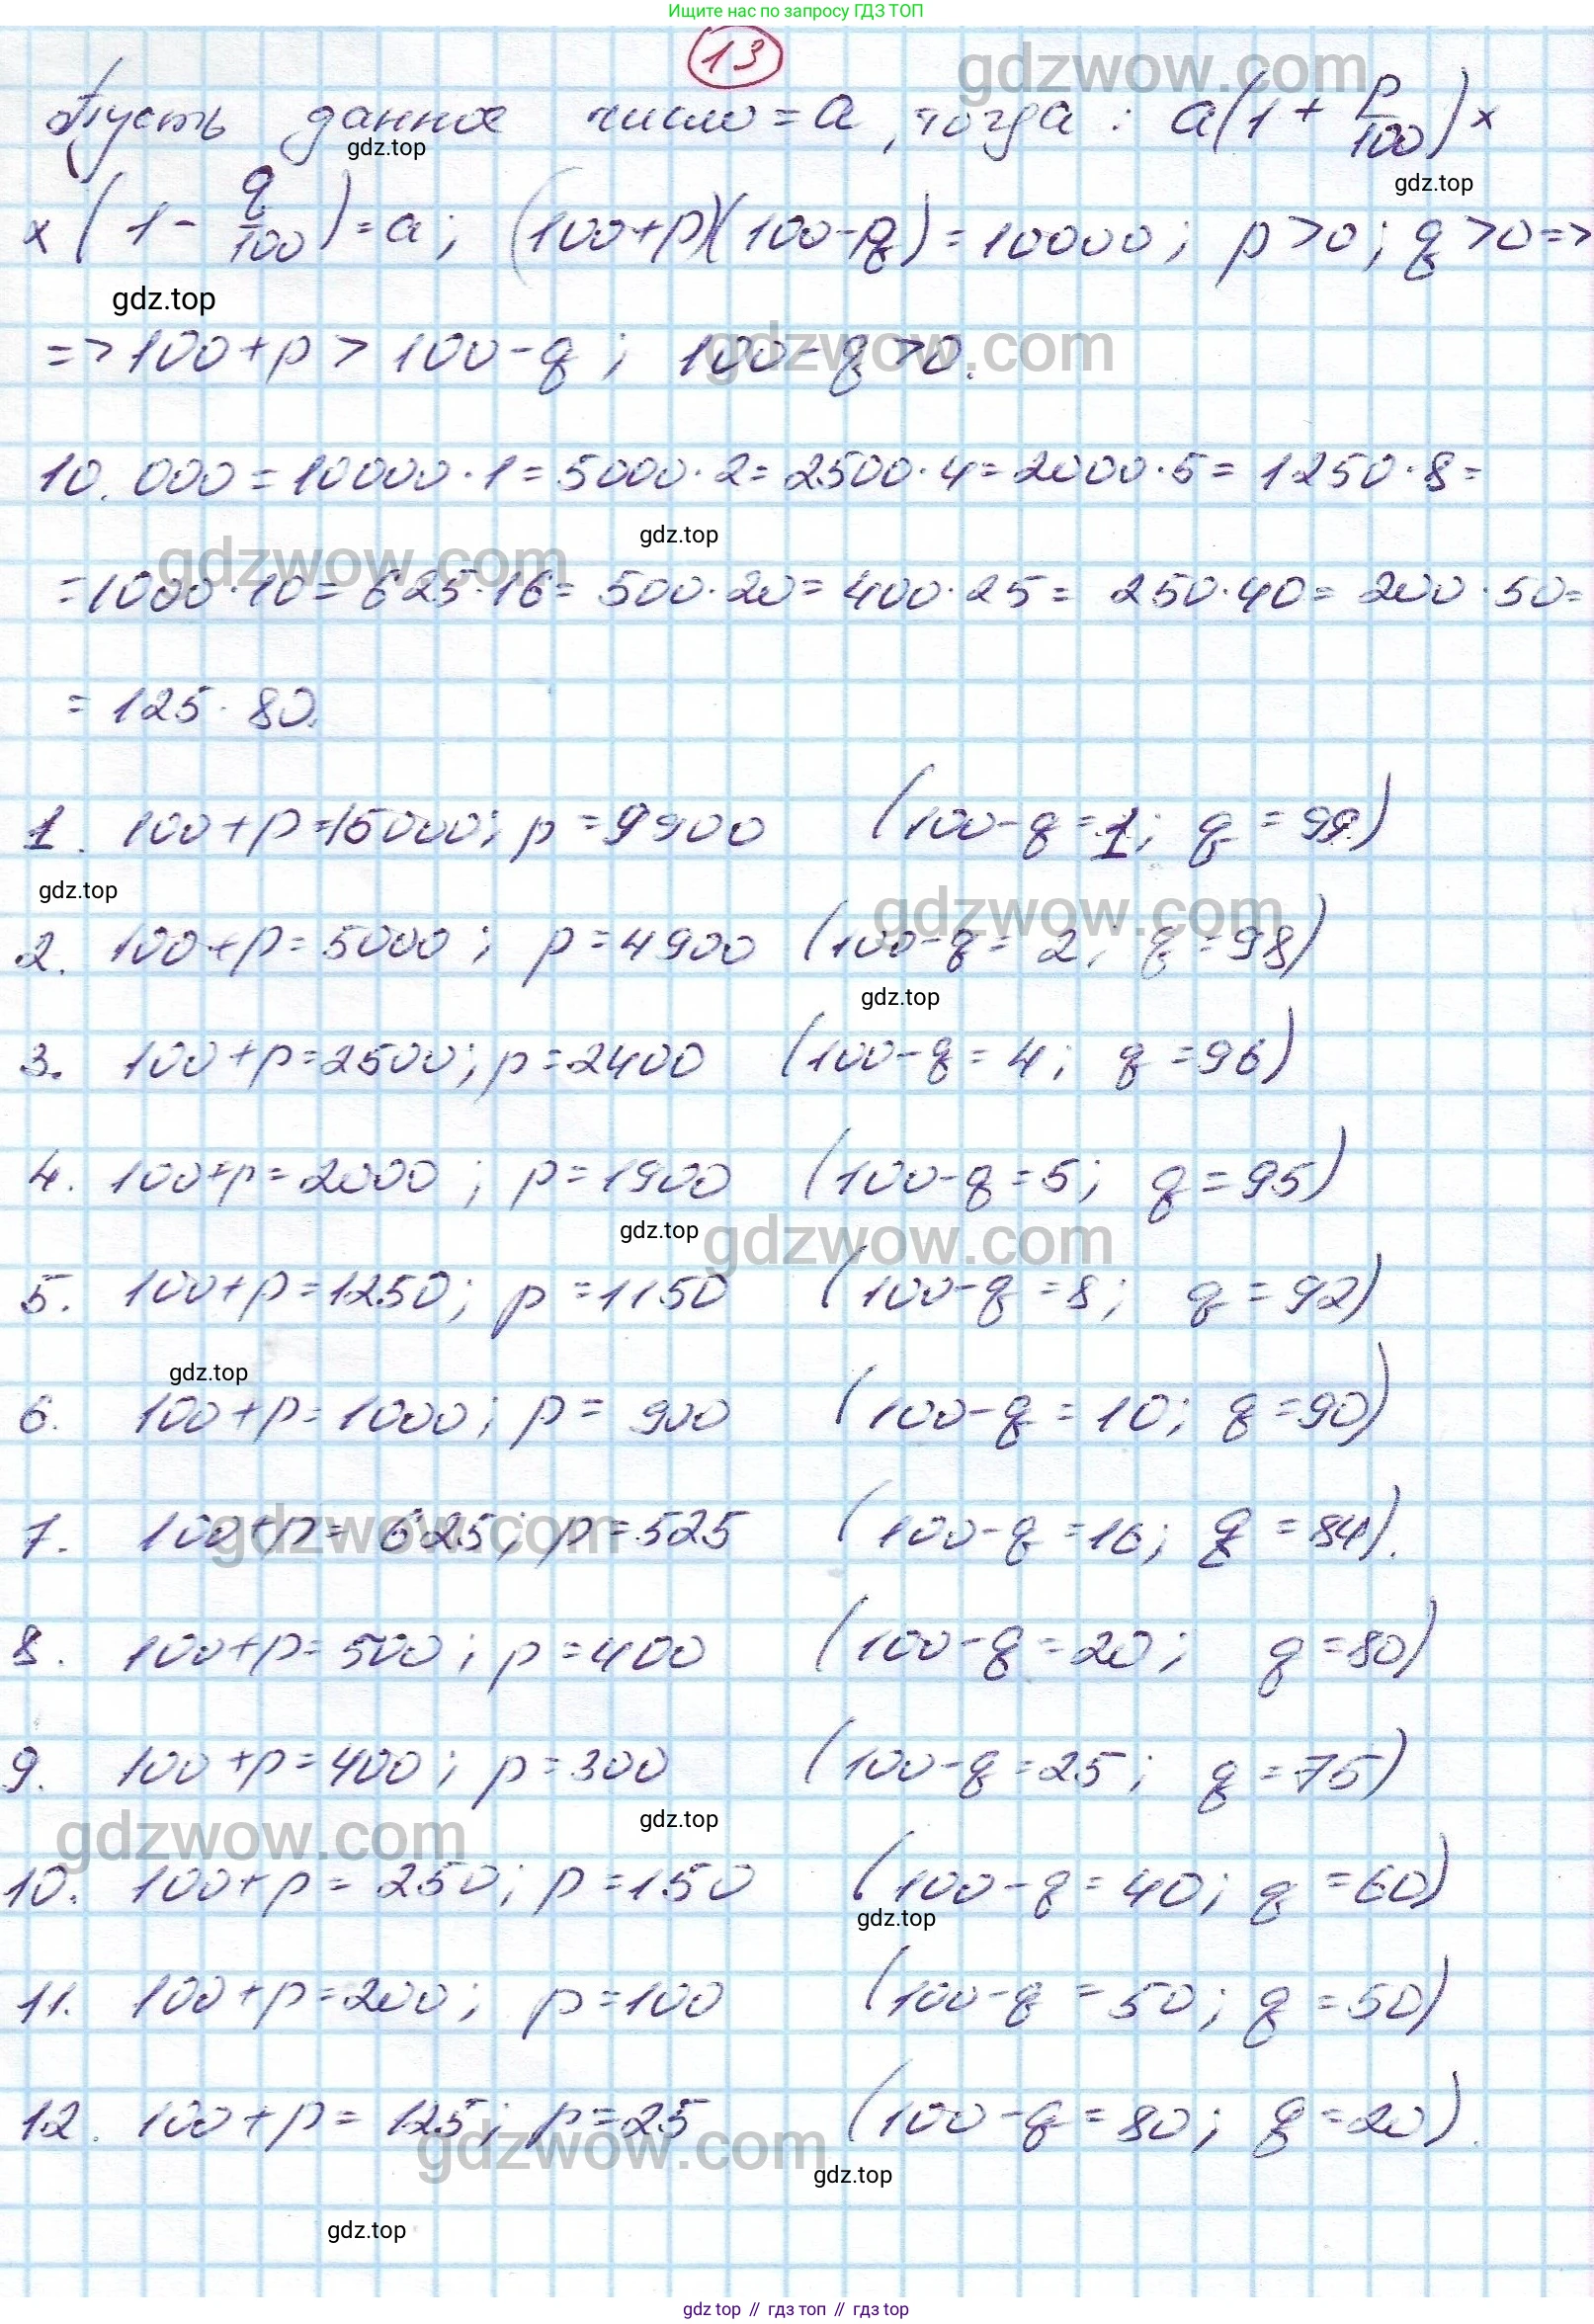 Ищите нас по запросу ГДЗ ТОП
13
gdzwow.com
Пусть данное число = a, тогда: a(1 + p/100) ×
gdz.top
gdz.top
× (1 - q/100) = a; (100+p)(100-q) = 10000; p>0; q>0 =>
gdz.top
=> 100+p > 100-q; 100-q>0.
gdzwow.com
10.000 = 10000·1 = 5000·2 = 2500·4 = 2000·5 = 1250·8 =
gdz.top
gdzwow.com
= 1000·10 = 625·16 = 500·20 = 400·25 = 250·40 = 200·50 =
= 125·80.
1. 100+p=15000; p=9900 (100-q=1; q=99)
gdz.top
gdzwow.com
2. 100+p=5000; p=4900 (100-q=2; q=98)
gdz.top
3. 100+p=2500; p=2400 (100-q=4; q=96)
4. 100+p=2000; p=1900 (100-q=5; q=95)
gdz.top
gdzwow.com
5. 100+p=1250; p=1150 (100-q=8; q=92)
gdz.top
6. 100+p=1000; p=900 (100-q=10; q=90)
gdzwow.com
7. 100+p=625; p=525 (100-q=16; q=84).
8. 100+p=500; p=400 (100-q=20; q=80)
9. 100+p=400; p=300 (100-q=25; q=75)
gdz.top
gdzwow.com
10. 100+p=250; p=150 (100-q=40; q=60)
gdz.top
11. 100+p=200; p=100 (100-q=50; q=50)
12. 100+p=125; p=25 (100-q=80; q=20).
gdzwow.com
gdz.top
gdz.top
gdz top // гдз топ // гдз top